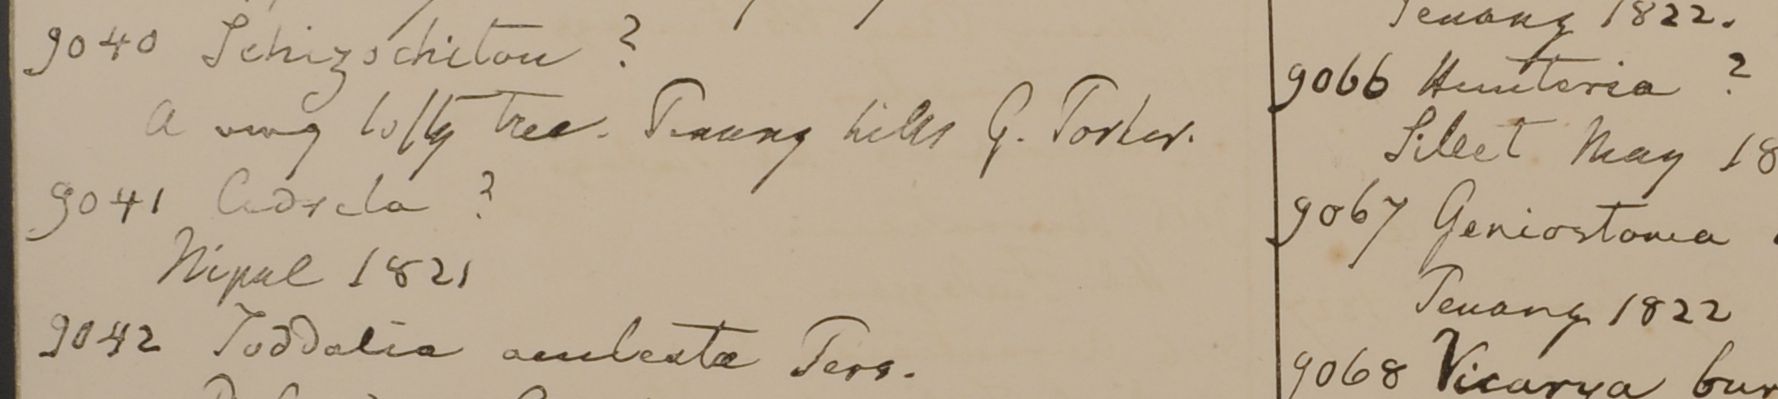 9040 Schizochiton ?
A very lofty tree. Penang hills G. Porter.
9041 Cedrela ?
Nipal 1821
9042 Toddalia aculeata Pers.
Penang 1822.
9066 Hunteria ?
Silet May 18
9067 Geniostoma
Penang 1822
9068 Vicarya bur